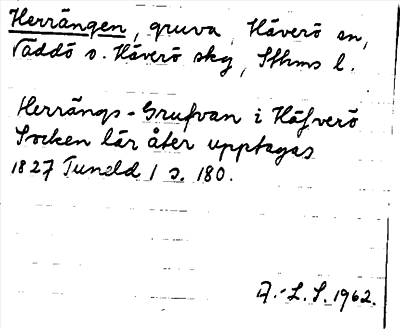 Herrängen, gruva, Häverö sn,
Väddö o. Häverö skg, Sthms l.
Herrängs-Grufvan i Häfverö
Socken lär åter upptagas
1827 Tuneld 1 s. 180.
A.-L. S. 1962.